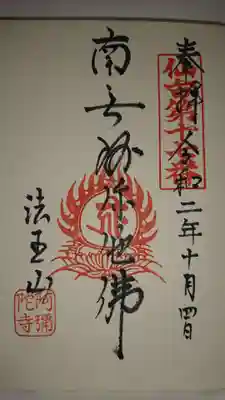 奉拝 令和二年十月四日
南无阿弥陀佛
法王山
阿彌
陀寺